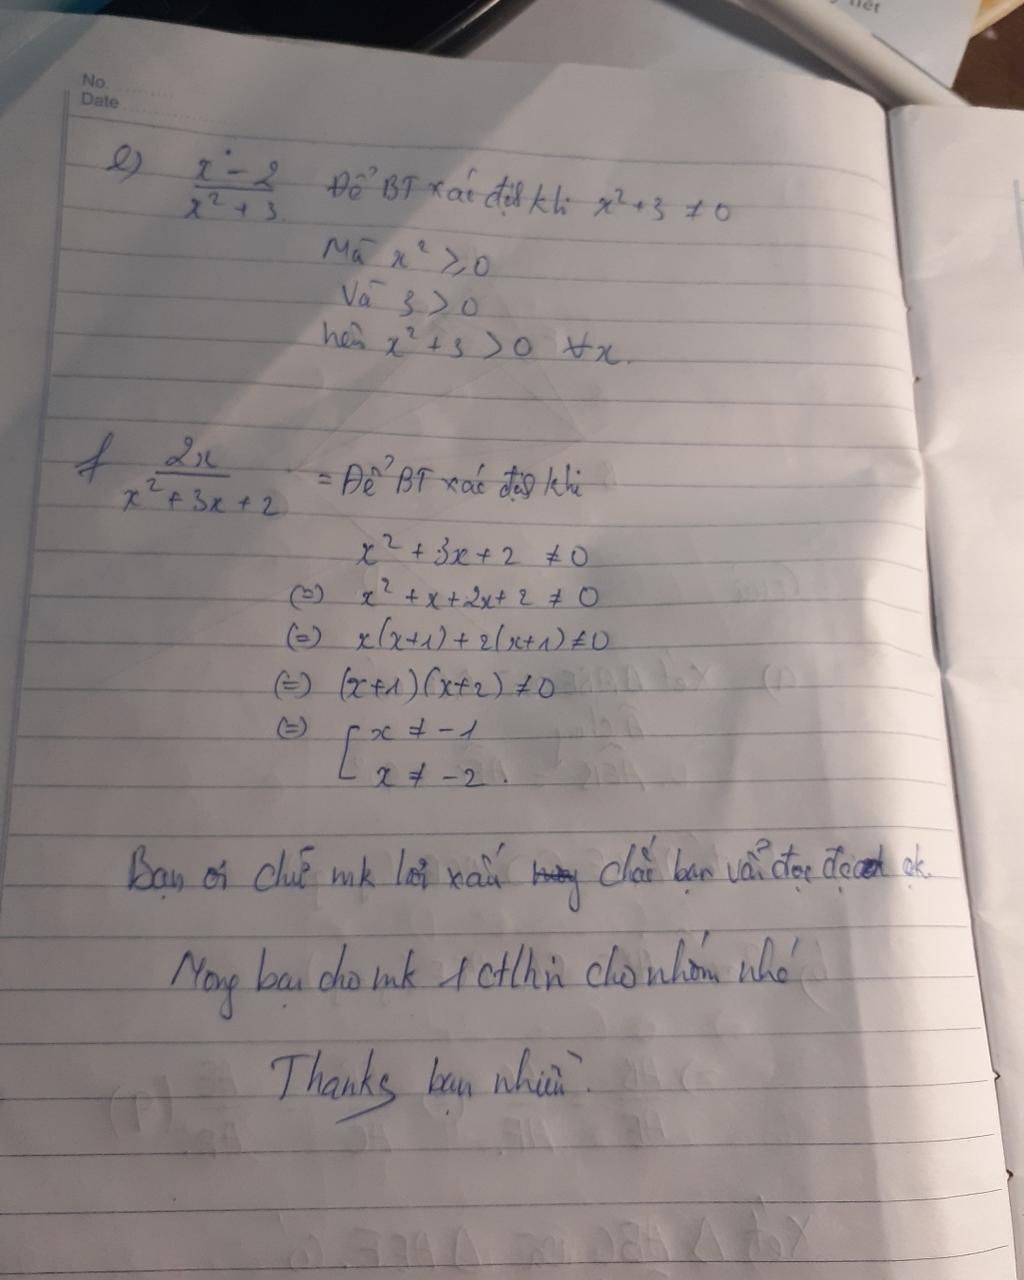 No.
Date
e) x - 2 / x² + 3 Để BT xác định khi x² + 3 ≠ 0
Mà x² ≥ 0
Và 3 > 0
nên x² + 3 > 0 ∀x.
f 2x / x² + 3x + 2 = Để BT xác định khi
x² + 3x + 2 ≠ 0
(=) x² + x + 2x + 2 ≠ 0
(=) x(x+1) + 2(x+1) ≠ 0
(=) (x+1)(x+2) ≠ 0
(=) [ x ≠ -1
x ≠ -2.
Bạn ơi chữ mk hơi xấu chắc bạn vẫn đọc được ạk.
Mong bạn cho mk 1 ctlhn cho nhóm nhé
Thanks bạn nhiều.